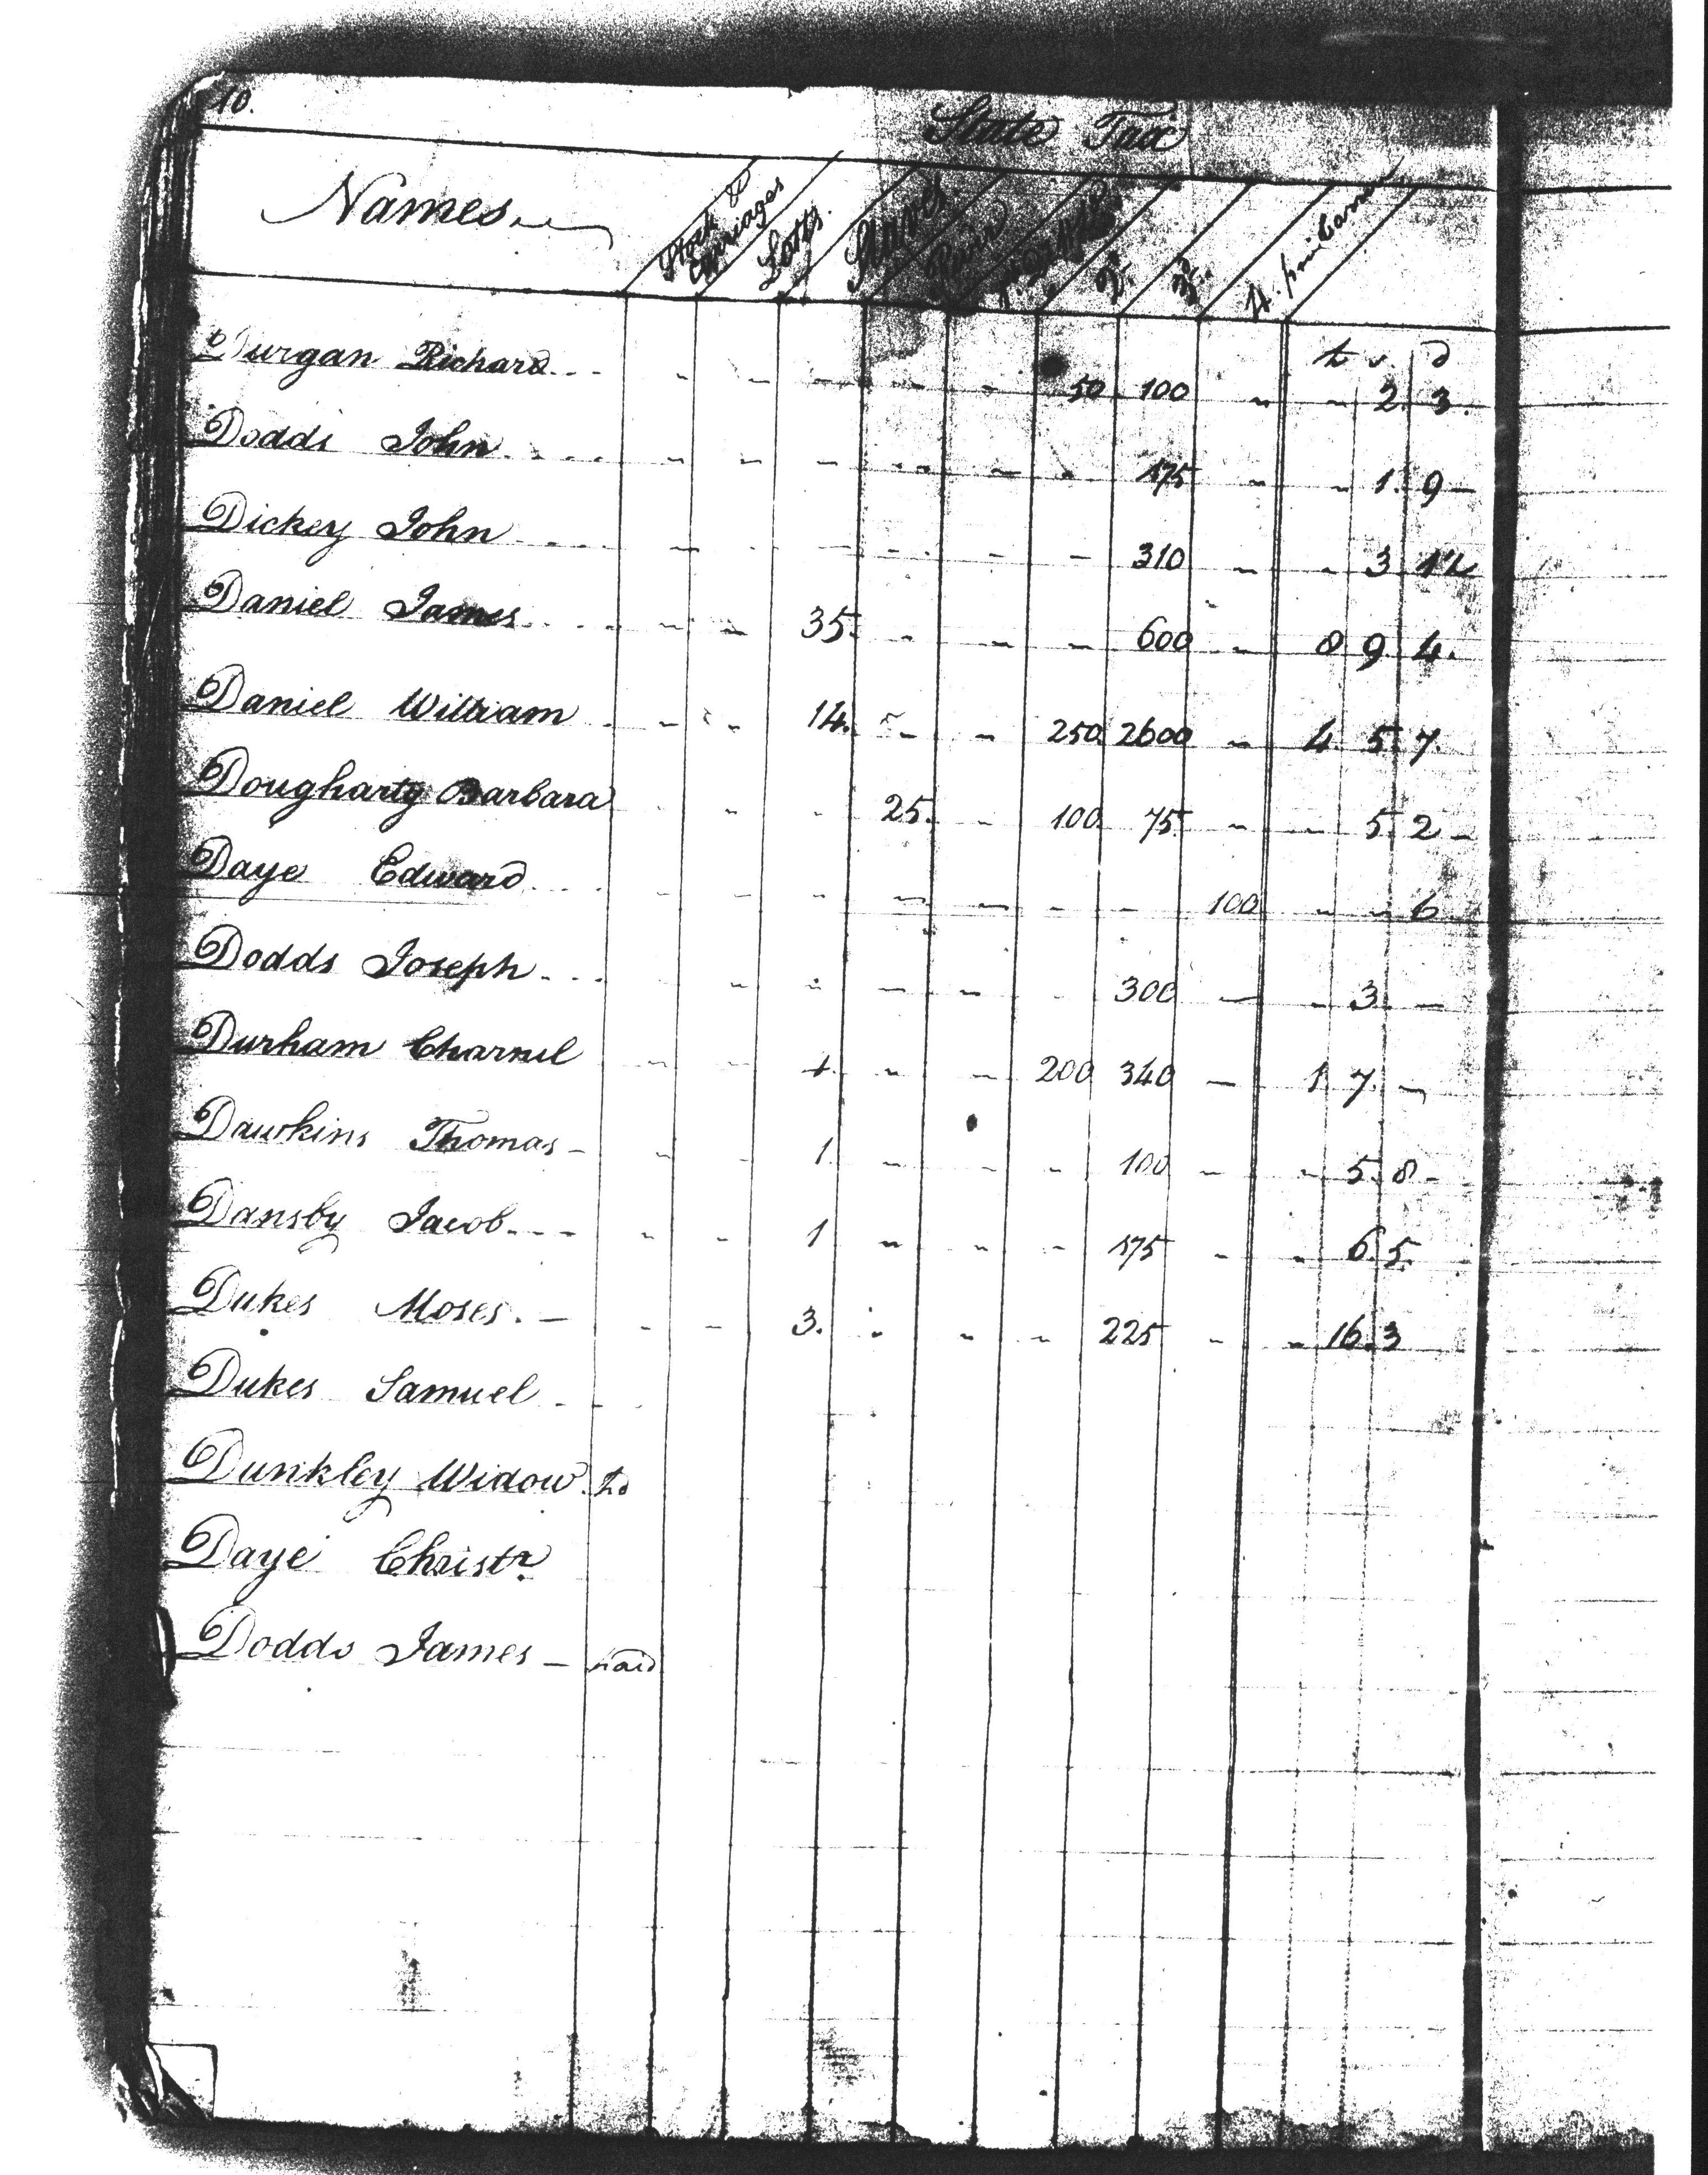 10.
State Tax
Names
Stock & Carriages Lotts. Slaves. 2d. 3d. 4. pine Barren
£ s. d
Durgan Richard - - - - - - - 50 100 - - 2. 3.
Dodds John - - - - - - - 175 - - 1. 9 -
Dickey John - - - - - - - 310 - - 3 1½
Daniel James - - - 35. - - - 600 - 8 9. 4.
Daniel William - - - 14. - - 250 2600 - 4. 5. 7.
Dougharty Barbara - - - 25. - 100 75 - - 5. 2 -
Daye Edward - - - - - - - - 100 - - 6
Dodds Joseph - - - - - - - 300 - - 3. -
Durham Charnel - - 4. - - 200 340 - 1. 7. -
Dawkins Thomas - - - 1. - - - 100 - - 5. 8 -
Dansby Jacob - - - 1 - - - 175 - - 6. 5.
Dukes Moses. - - - 3. - - - 225 - - 16. 3
Dukes Samuel - -
Dunkley Widow
Daye Christr.
Dodds James - paid